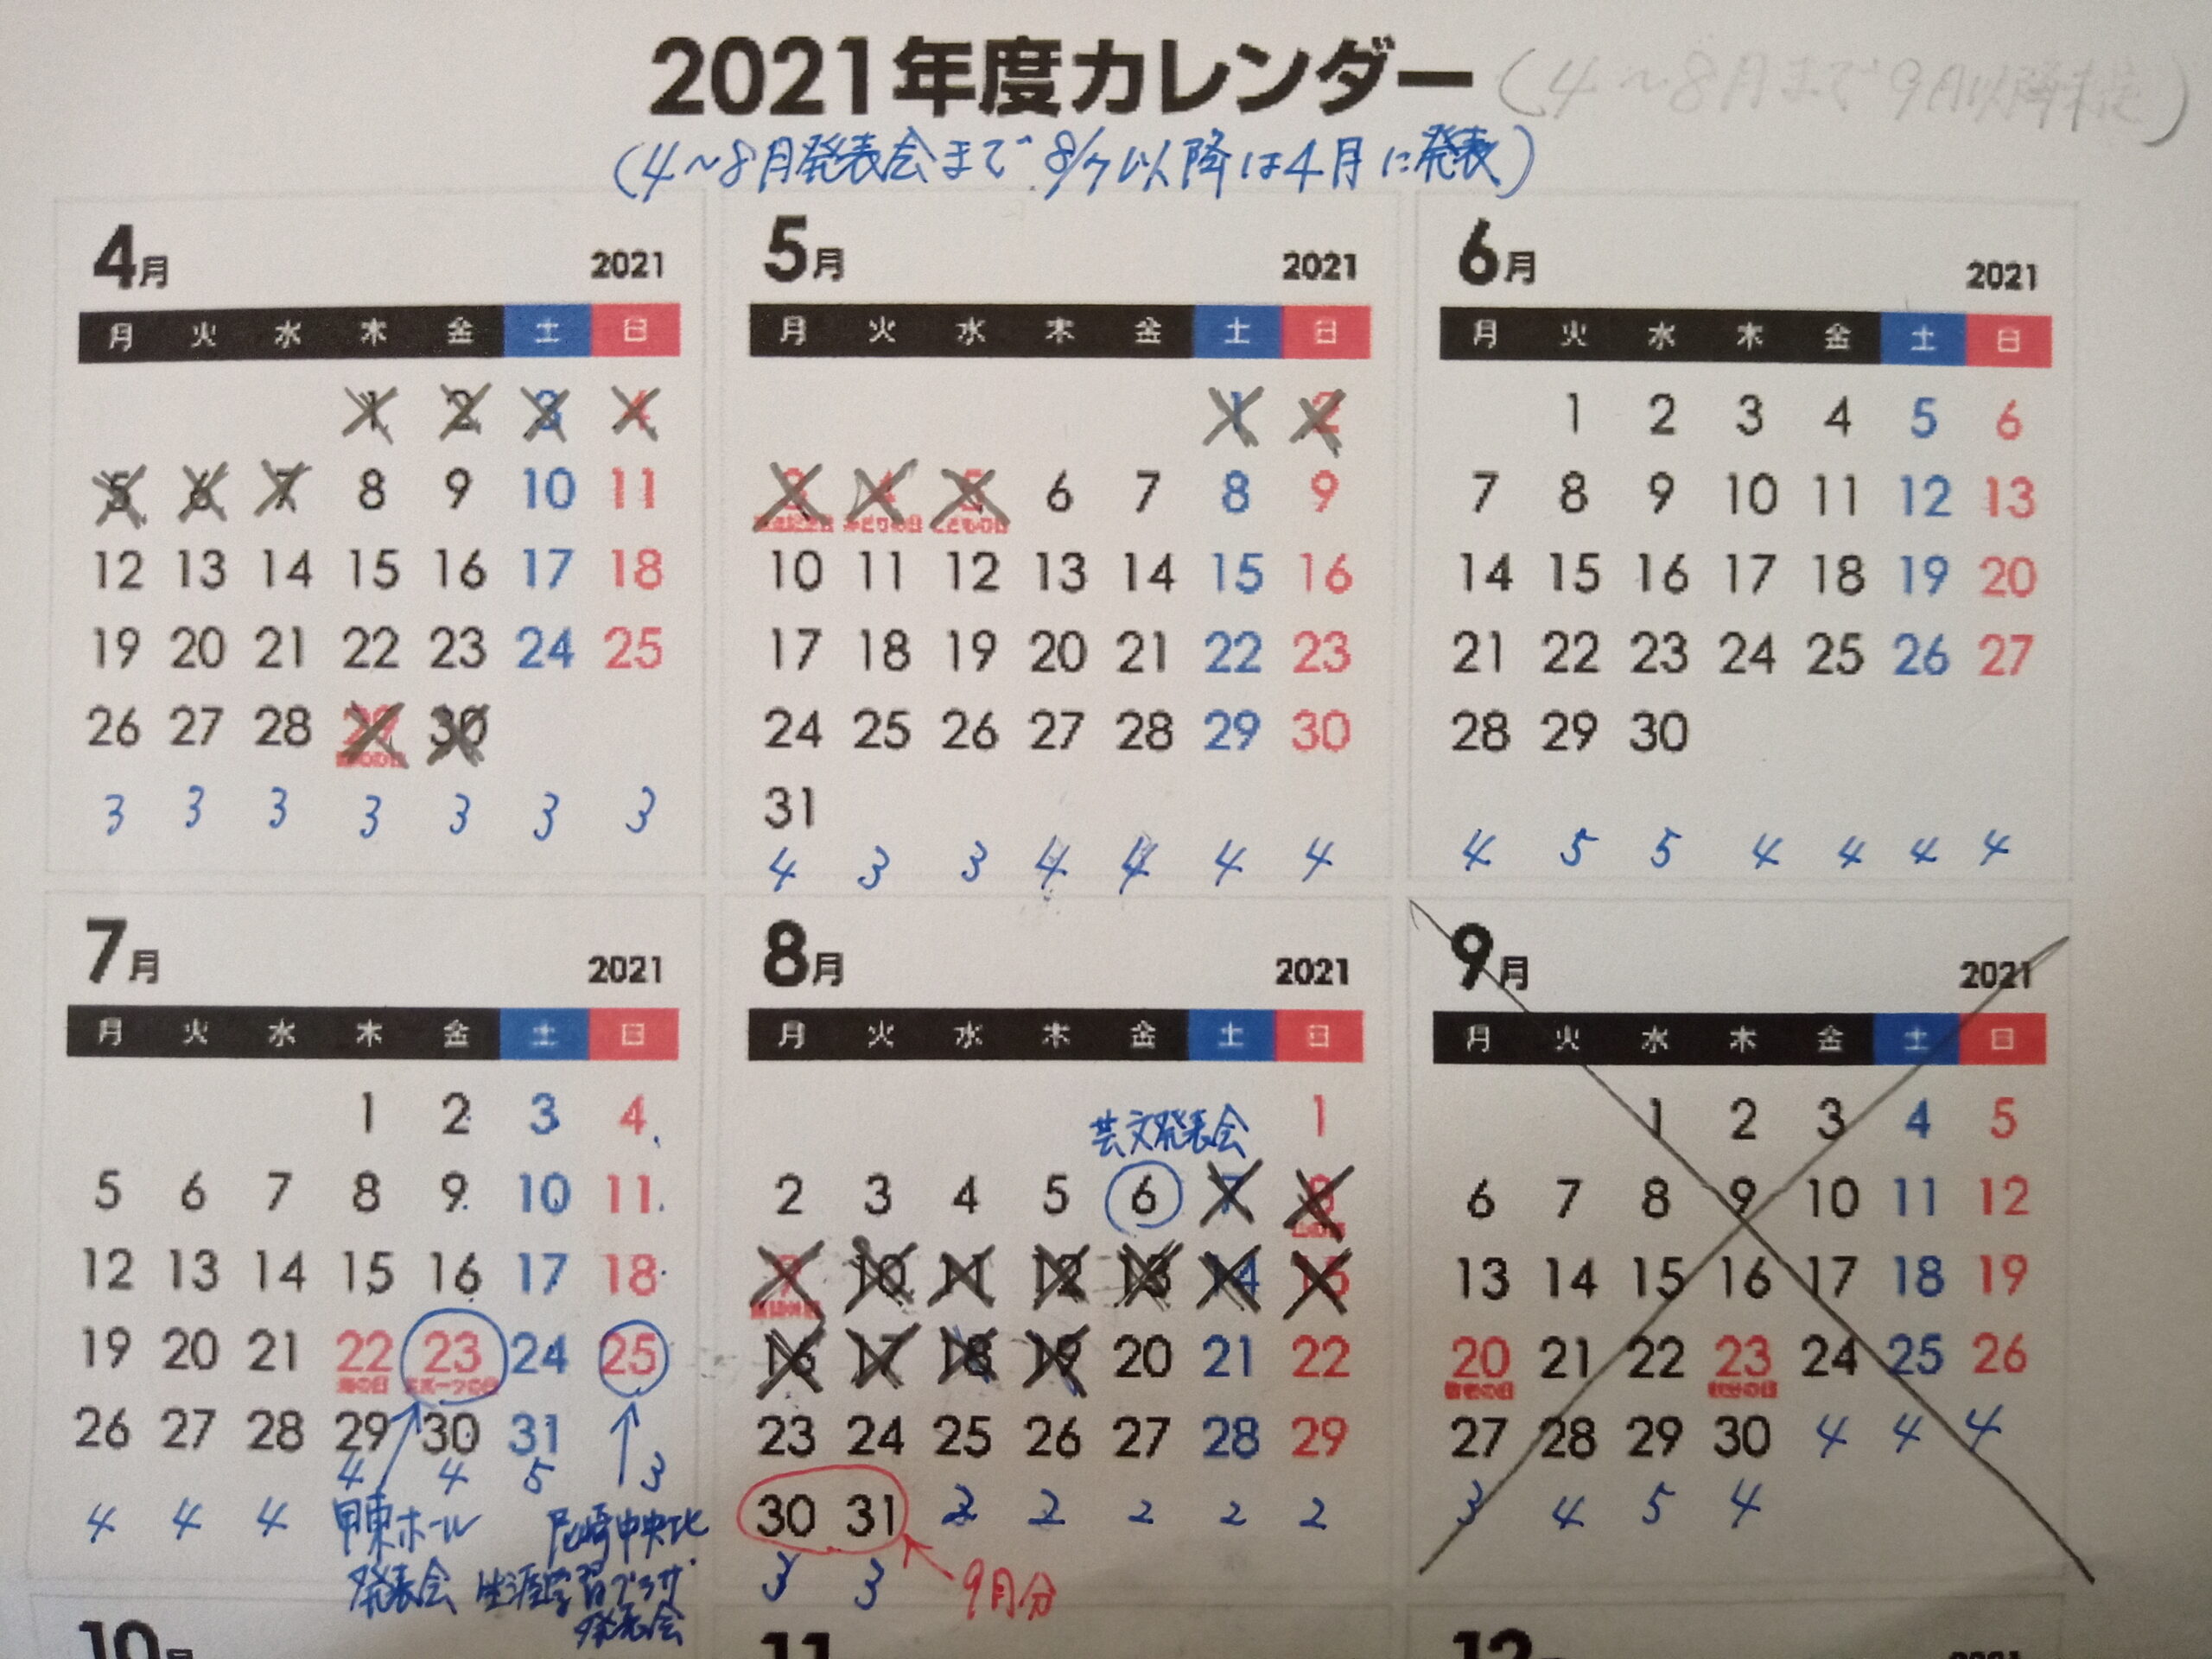 2021年度カレンダー (4～8月まで 9月以降未定)
(4～8月発表会まで 8/7以降は4月に発表)
4月 2021
月 火 水 木 金 土 日
1 2 3 4
5 6 7 8 9 10 11
12 13 14 15 16 17 18
19 20 21 22 23 24 25
26 27 28 29 30
3 3 3 3 3 3 3
5月 2021
月 火 水 木 金 土 日
1 2
3 4 5 6 7 8 9
みどりの日 こどもの日
10 11 12 13 14 15 16
17 18 19 20 21 22 23
24 25 26 27 28 29 30
31
4 3 3 4 4 4 4
6月 2021
月 火 水 木 金 土 日
1 2 3 4 5 6
7 8 9 10 11 12 13
14 15 16 17 18 19 20
21 22 23 24 25 26 27
28 29 30
4 5 5 4 4 4 4
7月 2021
月 火 水 木 金 土 日
1 2 3 4
5 6 7 8 9 10 11
12 13 14 15 16 17 18
19 20 21 22 23 24 25
海の日 スポーツの日
26 27 28 29 30 31
4 4 5 3
4 4 4
甲東ホール
発表会
尼崎中央北
生涯学習プラザ
発表会
8月 2021
月 火 水 木 金 土 日
1
芸文発表会
2 3 4 5 6 7 8
9 10 11 12 13 14 15
16 17 18 19 20 21 22
23 24 25 26 27 28 29
30 31 2 2 2 2 2
3 3
9月分
9月 2021
月 火 水 木 金 土 日
1 2 3 4 5
6 7 8 9 10 11 12
13 14 15 16 17 18 19
20 21 22 23 24 25 26
敬老の日 秋分の日
27 28 29 30 4 4 4
3 4 5 4
10月
11
12